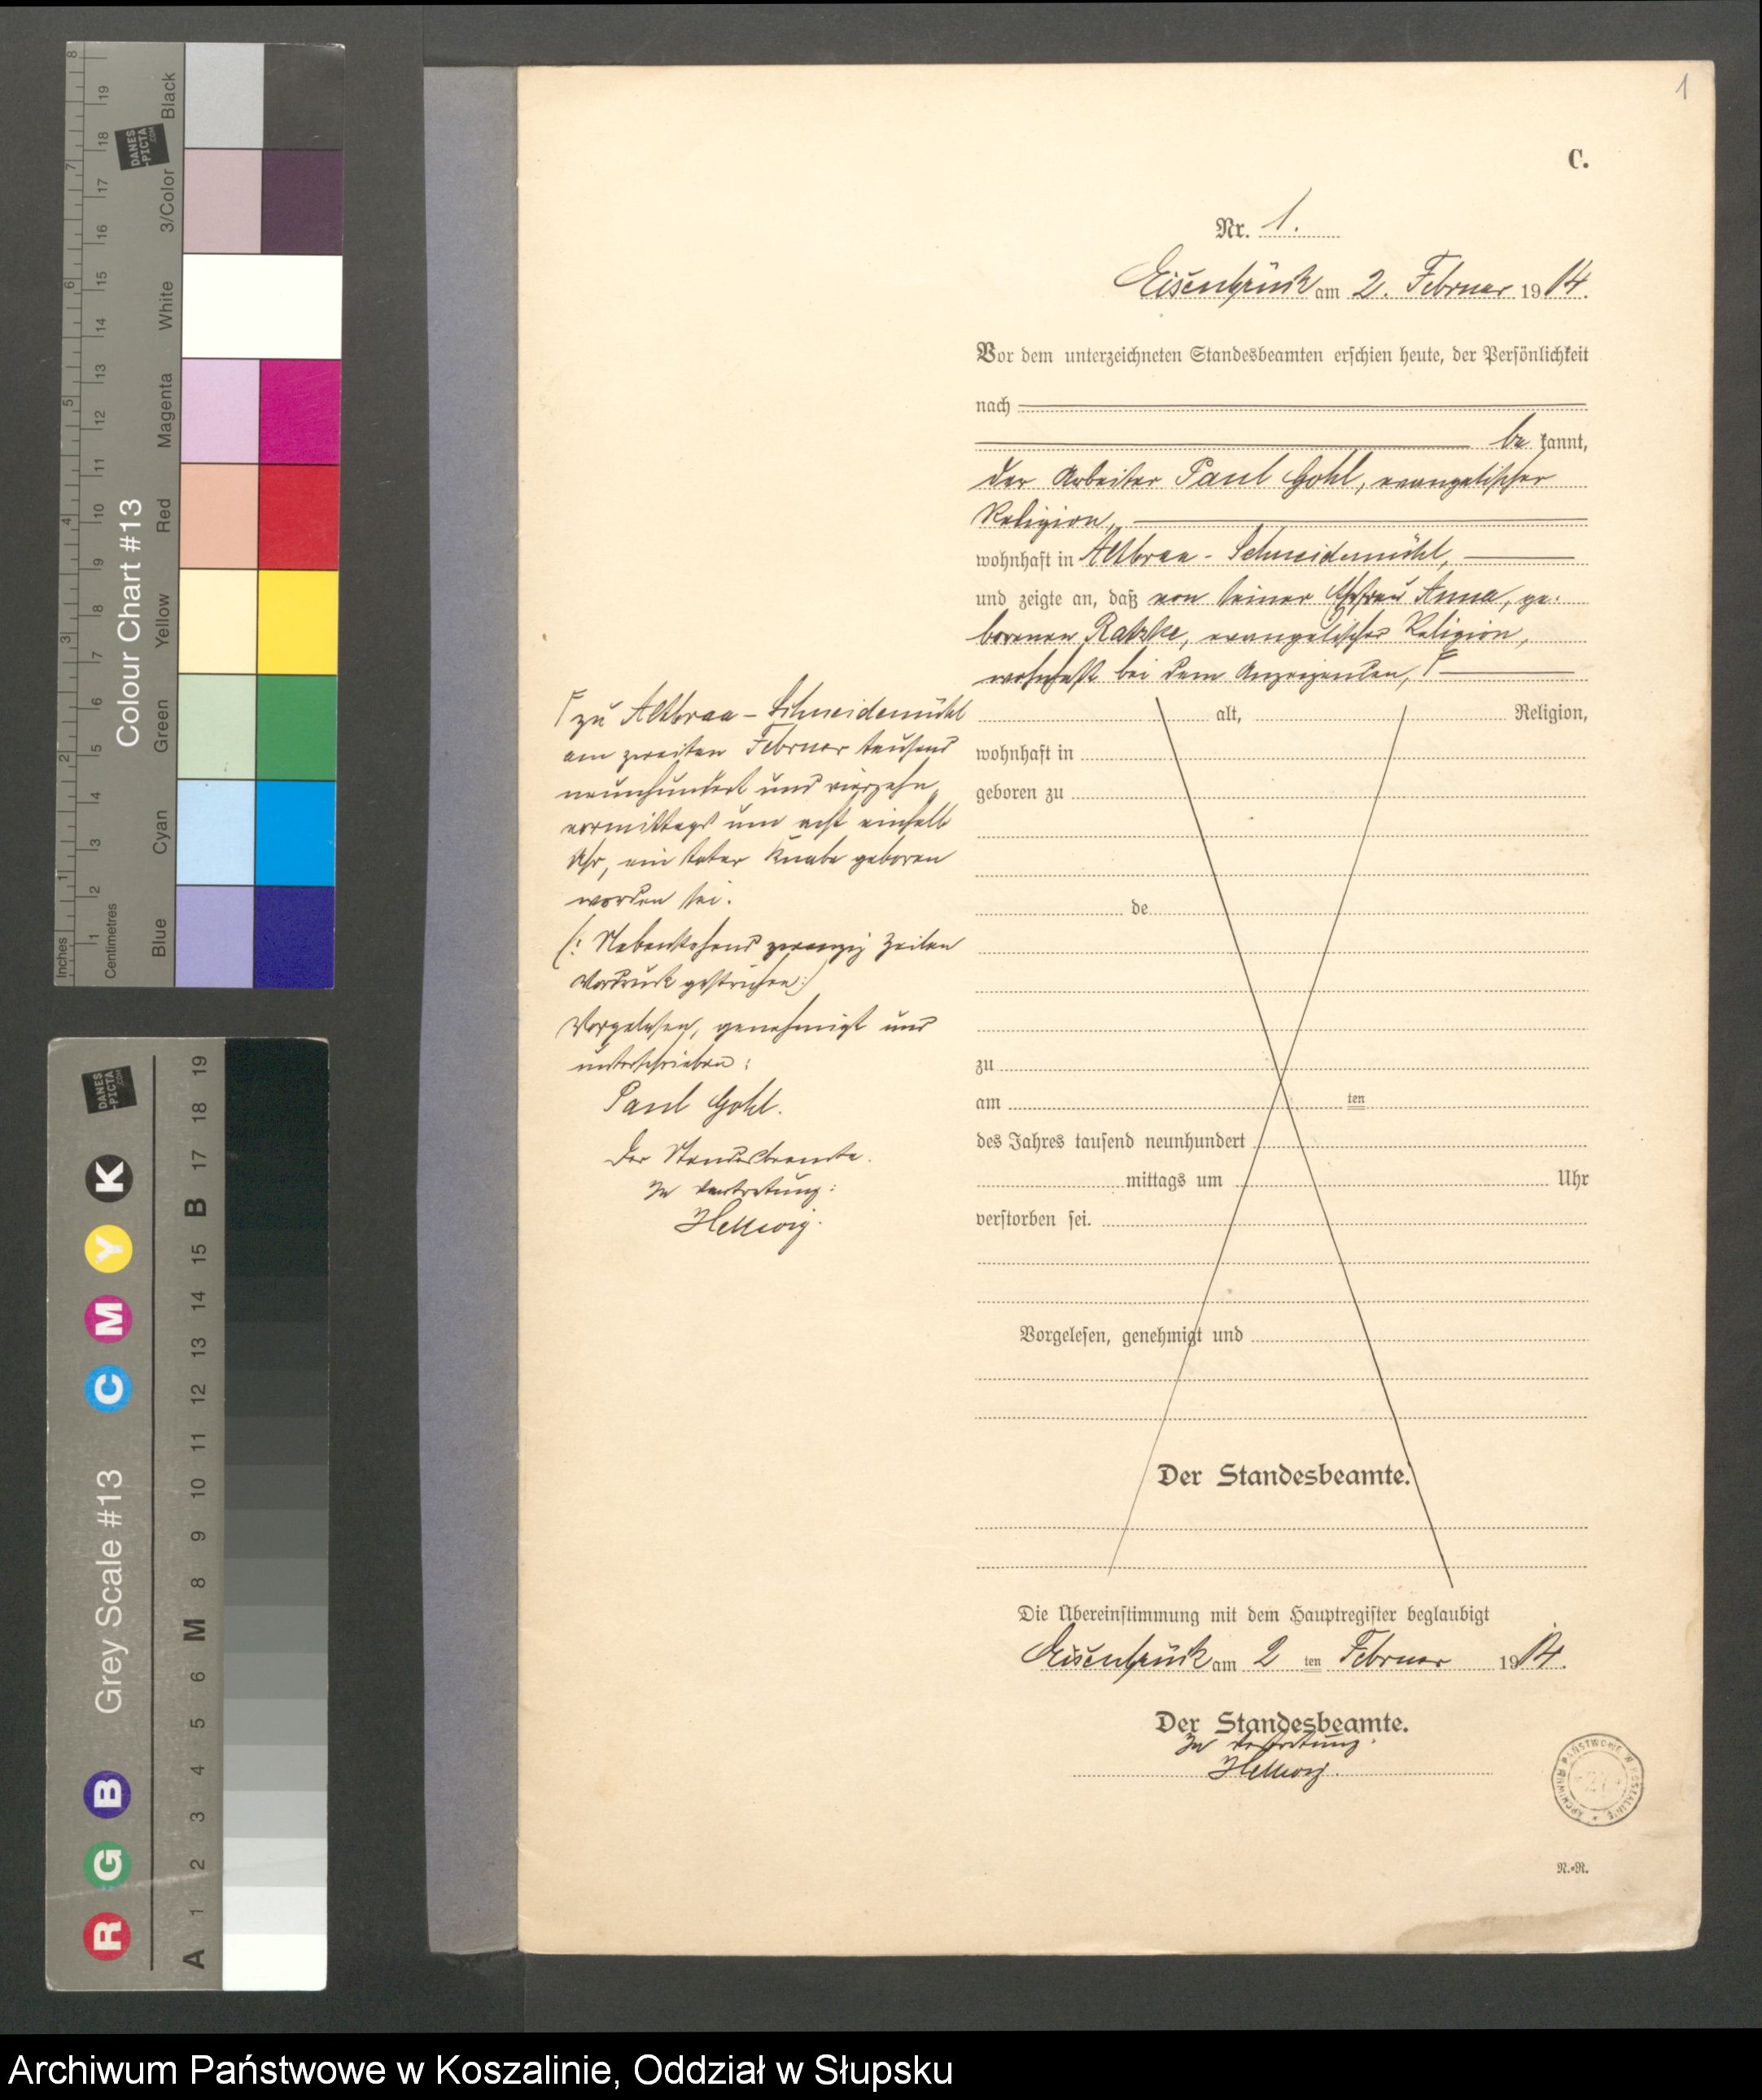 1
C.
Nr. 1.
Eisenbrück am 2. Februar 1914.
Vor dem unterzeichneten Standesbeamten erschien heute, der Persönlichkeit
nach
be kannt,
der Arbeiter Paul Gohl, evangelischer
Religion,
wohnhaft in Altbraa - Schneidemühl,
und zeigte an, daß von seiner Ehefrau Anna, ge-
borenen Ratzke, evangelischer Religion,
wohnhaft bei dem Anzeigenden, F
F zu Altbraa - Schneidemühl
am zweiten Februar tausend
neunhundert und vierzehn,
vormittags um acht einhalb
Uhr, ein toter Knabe geboren
worden sei.
(: Nebenstehend zwanzig Zeilen
Vordruck gestrichen :)
Vorgelesen, genehmigt und
unterschrieben:
Paul Gohl.
Der Standesbeamte.
In Vertretung:
Hellwig.
alt, Religion,
wohnhaft in
geboren zu
de
zu
am ten
des Jahres tausend neunhundert
mittags um Uhr
verstorben sei.
Vorgelesen, genehmigt und
Der Standesbeamte.
Die Übereinstimmung mit dem Hauptregister beglaubigt
Eisenbrück am 2 ten Februar 1914.
Der Standesbeamte.
In Vertretung:
Hellwig.
ARCHIWUM PAŃSTWOWE W KOSZALINIE
27
N.=R.
Colour Chart #13
Black
3/Color
White
Magenta
Red
Yellow
Green
Cyan
Blue
Inches
Centimetres
1 2 3 4 5 6 7 8
1 2 3 4 5 6 7 8 9 10 11 12 13 14 15 16 17 18 19
DANES
-PICTA
.COM
Grey Scale #13
R G B C M Y K
A 1 2 3 4 5 6 M 8 9 10 11 12 13 14 15 B 17 18 19
DANES
-PICTA
.COM
Archiwum Państwowe w Koszalinie, Oddział w Słupsku